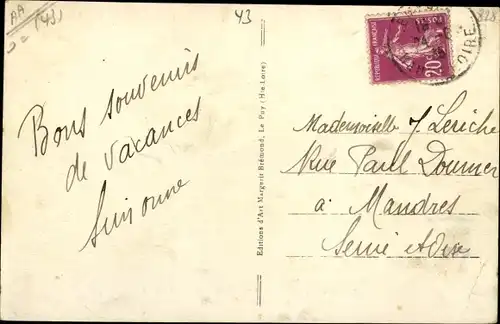 AA
(43)
43
Bons souvenirs
de vacances
Suzonne
Editions d'Art Margerit Brémond, Le Puy (Hte-Loire)
REPUBLIQUE FRANÇAISE
POSTES
20c
OIRE
Mademoiselle J. Leriche
Rue Paul Doumer
à Mandres
Seine et Oise